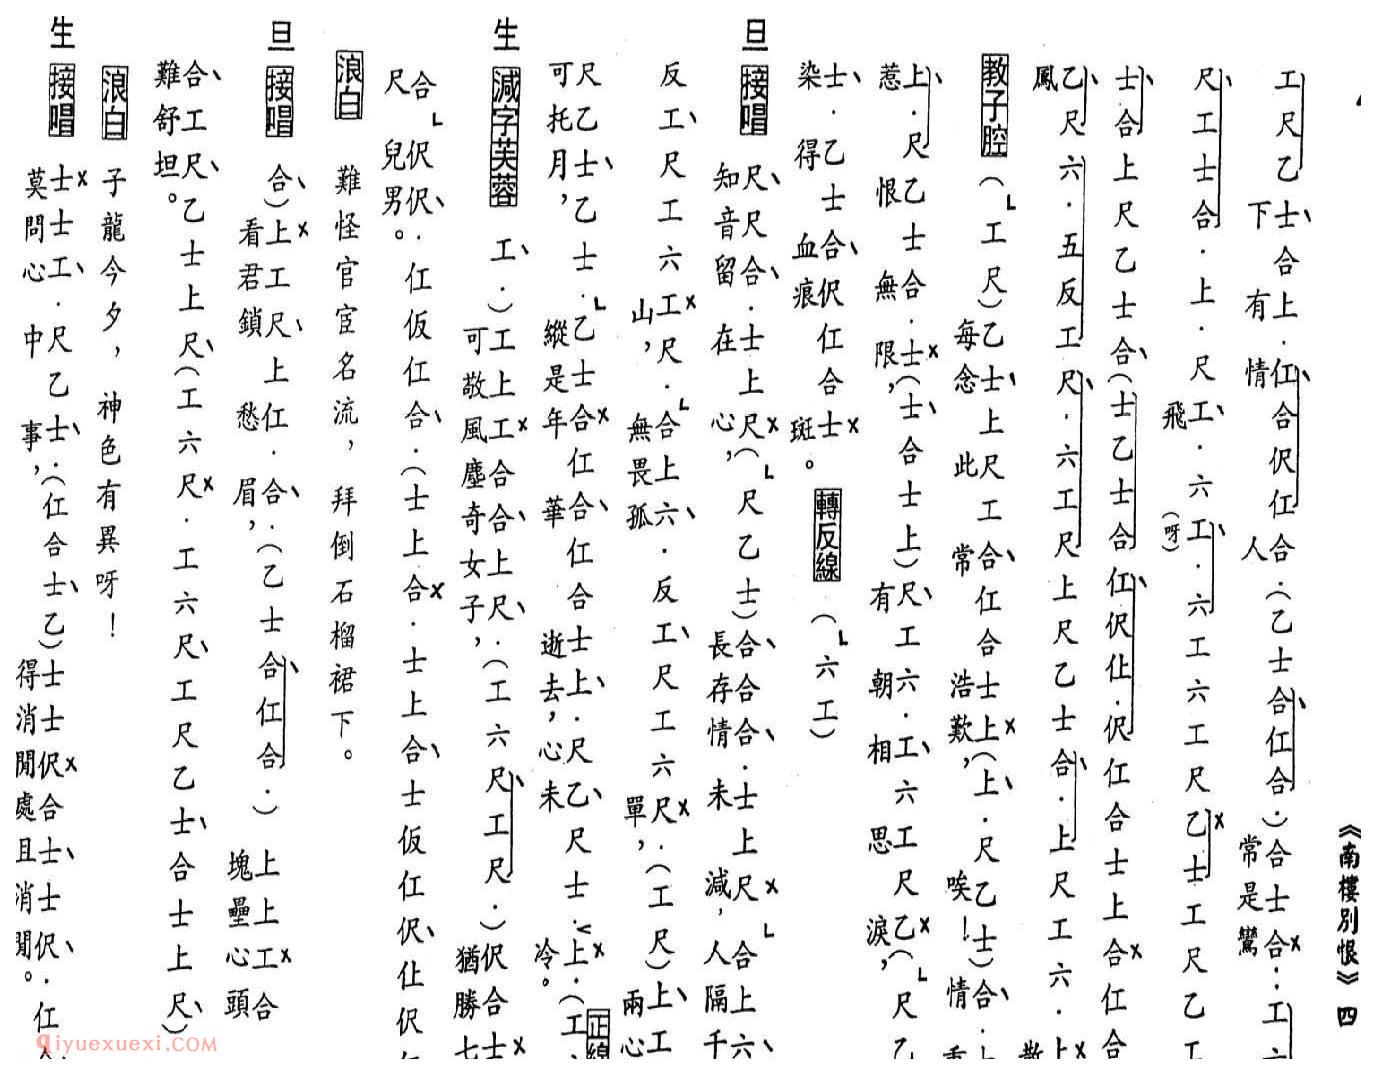 《南樓別恨》四
工尺乙士合上·仜合伬仜合·(乙士合仜合·)合士合·工
下有情人常是鸞
尺工士合·上·尺工·六工·六工六工尺乙士工尺乙工
飛(呀)
士合上尺乙士合(士乙士合仜伬仩·伬仜合士上合仜合
乙尺六·五反工尺·六工尺上尺乙士合·上尺工六·上
鳳
教子腔 (工尺)乙士上尺工合仜合士上(上·尺乙士)合·
每念此常浩歎,唉!情
上·尺乙士合·士(士合士上)尺工六·工六工尺乙(尺乙
惹恨無限,有朝相思淚,
士·乙士合伬仜合士 轉反線 (六工)
染得血痕斑。
旦 接唱 尺尺合·士上尺(尺乙士)合合合·士上尺合上六
知音留在心,長存情未減,人隔千
反工尺工六工尺·合上六·反工尺工六尺·(工尺)上工
山,無畏孤單,兩心
尺乙士乙士·乙士合仜合仜合士上·尺乙尺士·上·(工 正線
可托月,縱是年華逝去,心未冷。
生 減字芙蓉 工·)工上工合合上尺·(工六尺工尺·)伬合士
可敬風塵奇女子,猶勝七
合伬伬·仜仮仜合·(士上合·士上合士仮仜伬仩伬
尺兒男。
浪白 難怪官宦名流,拜倒石榴裙下。
旦 接唱 合)上工尺上仜·合·(乙士合仜合·)上上工合
看君鎖愁眉,塊壘心頭
合工尺乙士上尺(工六尺·工六尺工尺乙士合士上尺)
難舒坦。
浪白 子龍今夕,神色有異呀!
生 接唱 士士工·尺乙士·(仜合士乙)士士伬合士士伬·仜
莫問心中事,得消閒處且消閒。
qiyuexuexi.COM